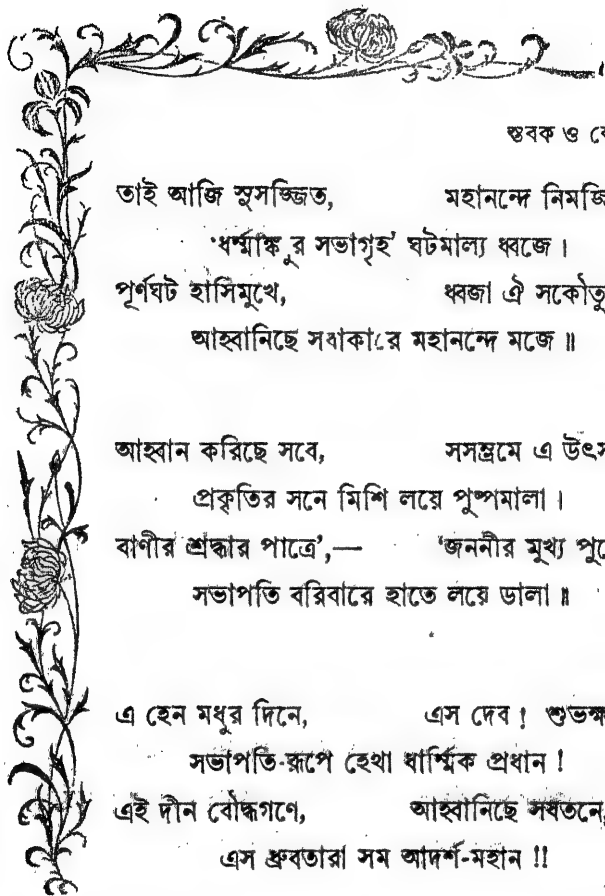 স্তবক ও কে
তাই আজি সুসজ্জিত, মহানন্দে নিমজ্জি
'ধর্ম্মাঙ্কুর সভাগৃহ' ঘটমাল্য ধ্বজে।
পূর্ণঘট হাসিমুখে, ধ্বজা ঐ সকৌতু
আহ্বানিছে সবাকারে মহানন্দে মজে॥
আহ্বান করিছে সবে, সসম্ভ্রমে এ উৎস
প্রকৃতির সনে মিশি লয়ে পুষ্পমালা।
বাণীর শ্রদ্ধার পাত্রে',— 'জননীর মুখ্য পুত্রে
সভাপতি বরিবারে হাতে লয়ে ডালা॥
এ হেন মধুর দিনে, এস দেব! শুভক্ষ
সভাপতি-রূপে হেথা ধার্ম্মিক প্রধান!
এই দীন বৌদ্ধগণে, আহ্বানিছে সযতনে,
এস ধ্রুবতারা সম আদর্শ-মহান!!